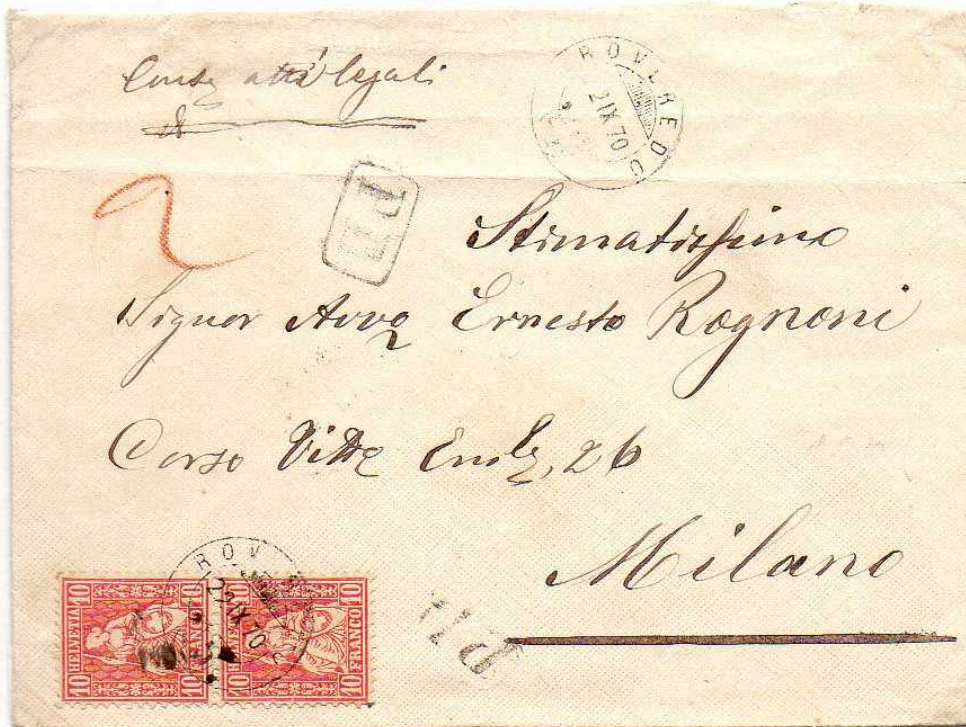 atti legali
ROVEREDO
2 IX 70
PD
2
Stimatissimo
Signor Avvo Ernesto Rognoni
Corso Vitte Emle, 26
Milano
ROV
2 IX 70
10 HELVETIA FRANCO 10
10 HELVETIA FRANCO 10